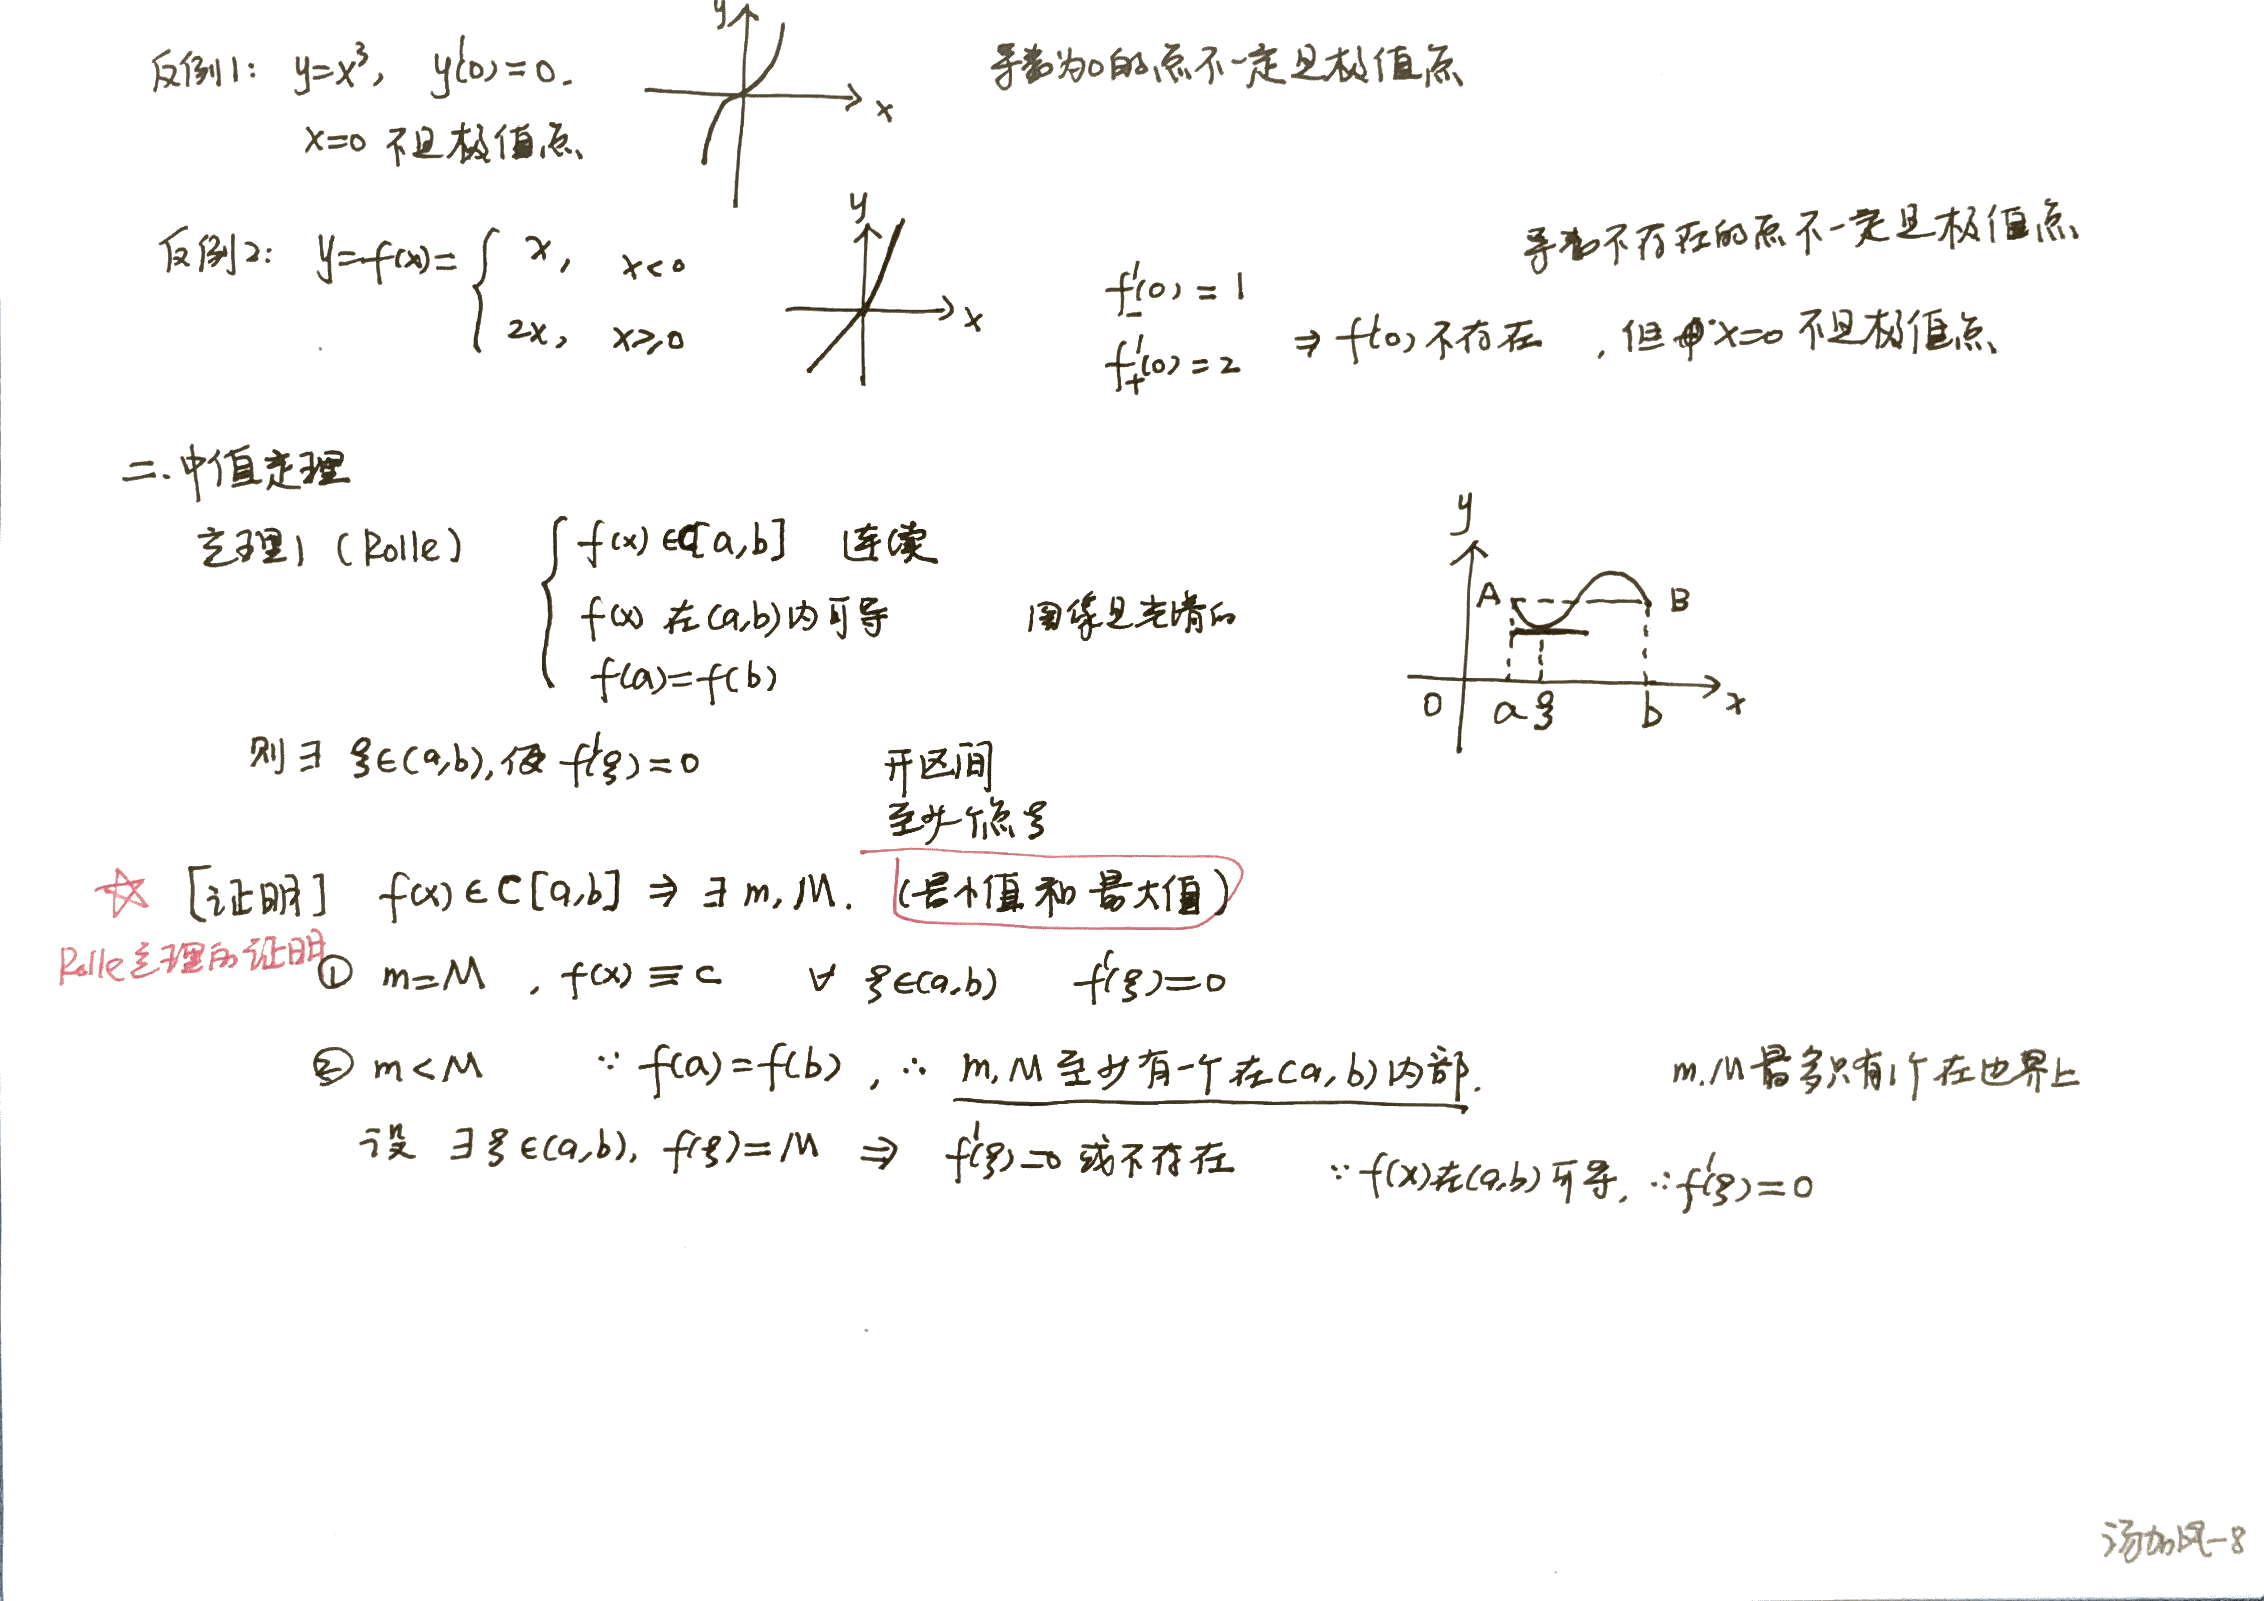 反例1: y=x³, y'(0)=0. 导数为0的点不一定是极值点
x=0 不是极值点
y
x
反例2: y=f(x)= { x, x<0
2x, x≥0
y
x
导数不存在的点不一定是极值点
f'₋(0)=1
f'₊(0)=2 ⇒ f'(0)不存在, 但 x=0 不是极值点
二. 中值定理
定理1 (Rolle) { f(x)∈C[a,b] 连续
f(x) 在(a,b)内可导 图像是光滑的
f(a)=f(b)
y
A B
0 a ξ b x
则 ∃ ξ∈(a,b), 使 f'(ξ)=0 开区间
至少一个点ξ
☆ [证明] f(x)∈C[a,b] ⇒ ∃ m, M. (最小值和最大值)
Rolle定理的证明
① m=M, f(x)≡c ∀ ξ∈(a,b) f'(ξ)=0
② m<M ∵ f(a)=f(b), ∴ m, M至少有一个在(a,b)内部. m.M最多只有1个在边界上
设 ∃ξ∈(a,b), f(ξ)=M ⇒ f'(ξ)=0 或不存在 ∵f(x)在(a,b)可导, ∴f'(ξ)=0
8